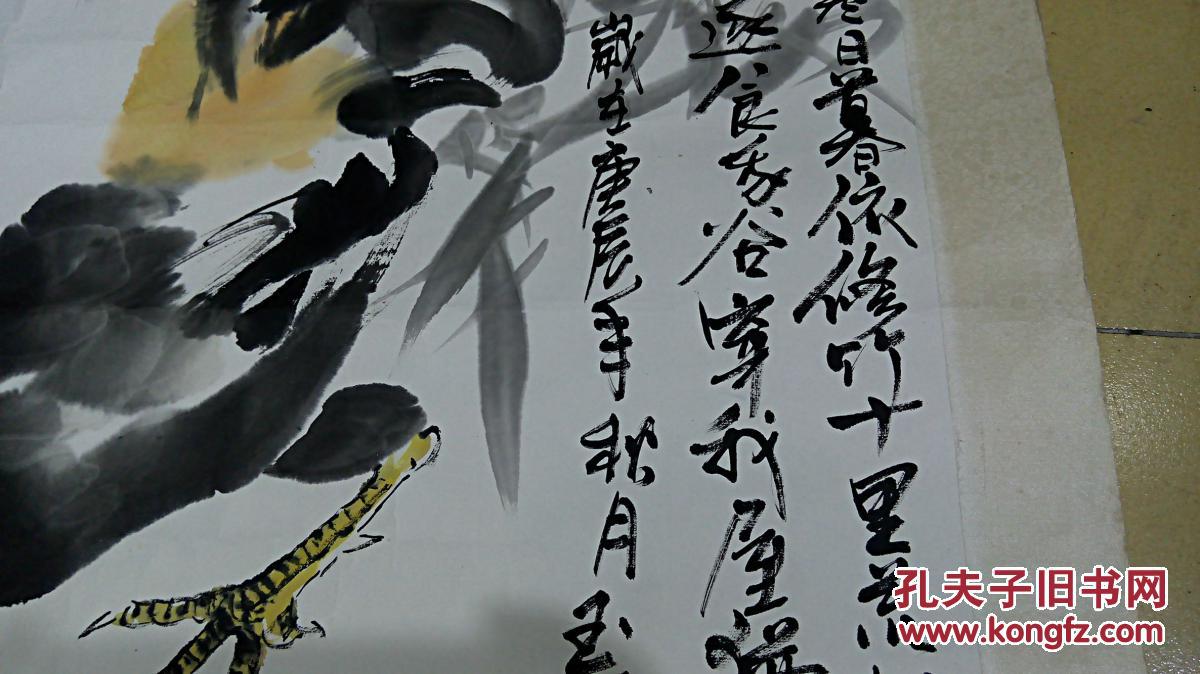 日暮依修竹十里
逐食家谷穿我屋
歲在庚辰年秋月玉
孔夫子旧书网
www.kongfz.com